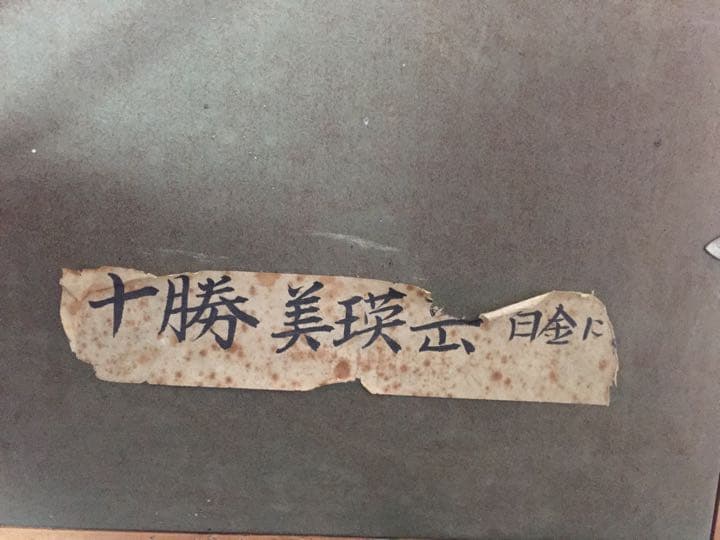 十勝 美瑛岳 白金に